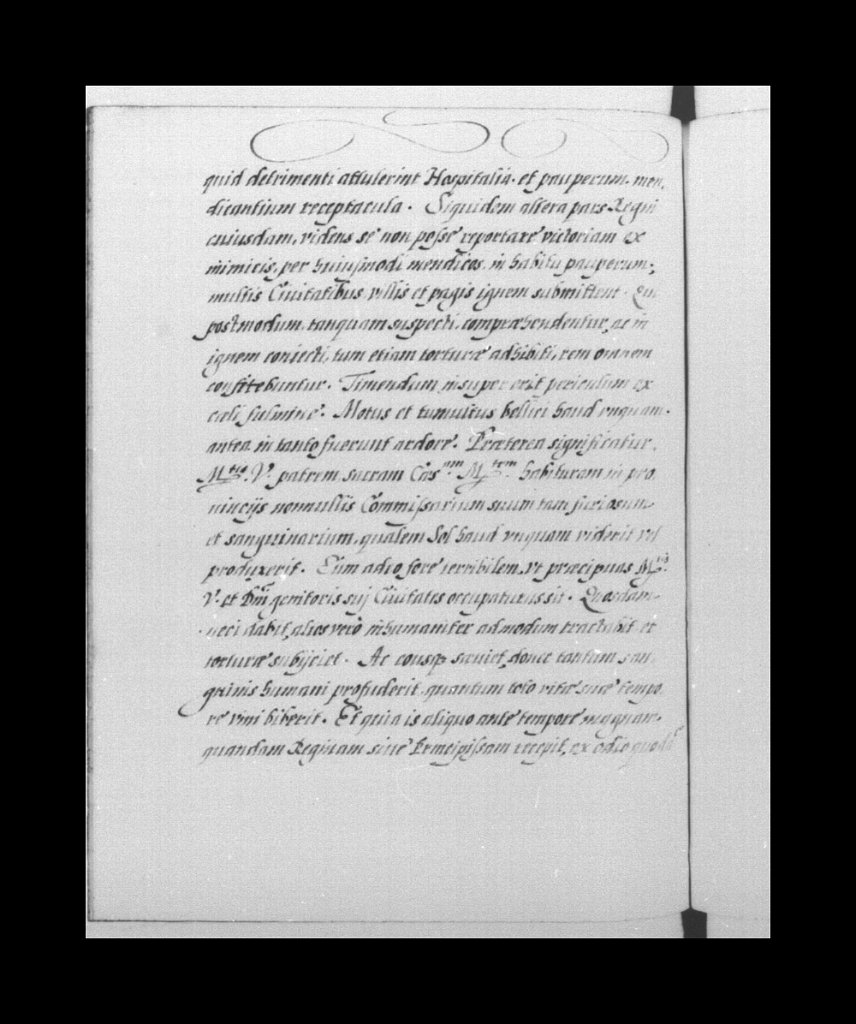 quid detrimenti attulerint Hospitalia. et pauperum. men,
dicantium receptacula. Siquidem altera pars Regni
cuiusdam, videns se non posse reportare victoriam ex
inimicis, per huiusmodi mendicos, in habitu pauperum,
multis Ciuitatibus, villis et pagis ignem submittent. Qui
postmodum, tanquam suspecti, compraehendentur, ac in
ignem coniecti, tum etiam torturae adhibiti, rem omnem
confitebuntur. Timendum insuper erit periculum ex
caeli fulmine. Motus et tumultus bellici haud vnquam
antea in tanto fuerunt ardore. Praeterea significatur.
M.tis V. patrem sacram Caes.am M.tem habituram in pro,
uincijs nonnullis Commissarium suum tam furiosum
et sanguinarium, qualem Sol haud vnquam viderit vel
produxerit. Eum adeo fore terribilem, vt praecipuas M.tis
V. et Dni genitoris sui Ciuitatis occupaturus sit. Quosdam
neci dabit, alios vero inhumaniter admodum tractabit et
torturae subijciet. Ac eousq, saeuiet, donec tantum san,
guinis humani profuderit, quantum toto vitae suae tempo,
re vini biberit. Et quia is aliquo ante tempore
quandam Reginam siue Principissam recepit, ex odio